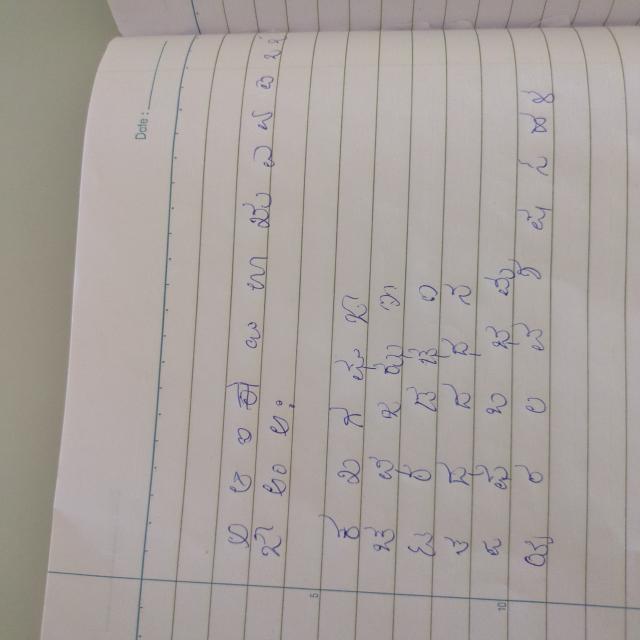 Date :
ಅ ಆ ಇ ಈ ಉ ಊ ಋ ಎ ಏ ಐ ಒ ಓ
ಔ ಅಂ ಅಃ
ಕ ಖ ಗ ಘ ಙ
5
ಚ ಛ ಜ ಝ ಞ
ಟ ಠ ಡ ಢ ಣ
ತ ಥ ದ ಧ ನ
ಪ ಫ ಬ ಭ ಮ
ಯ ರ ಲ ವ ಶ ಷ ಸ ಹ ಳ
10